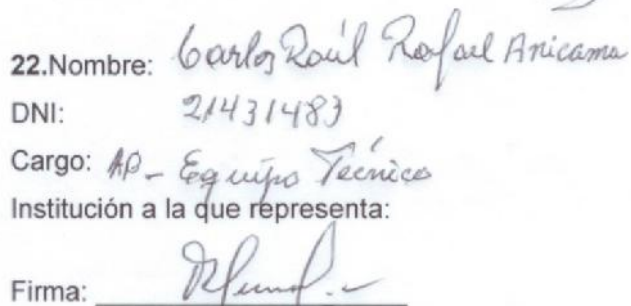 22.Nombre: Carlos Raúl Rafael Anicama
DNI: 21431483
Cargo: AP - Equipo Técnico
Institución a la que representa:
Firma: